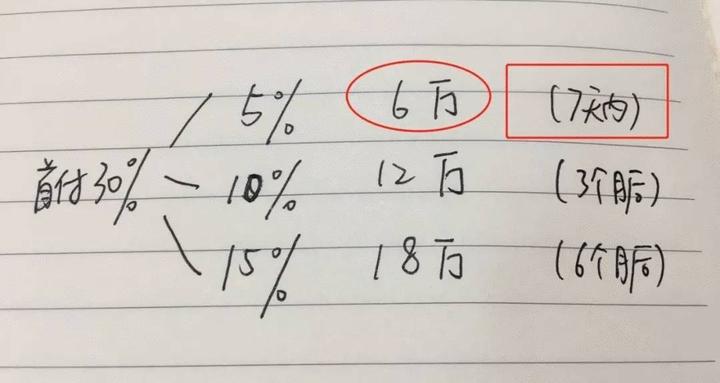 5% 6万 (7天内)
首付30% 10% 12万 (3个月后)
15% 18万 (6个月后)